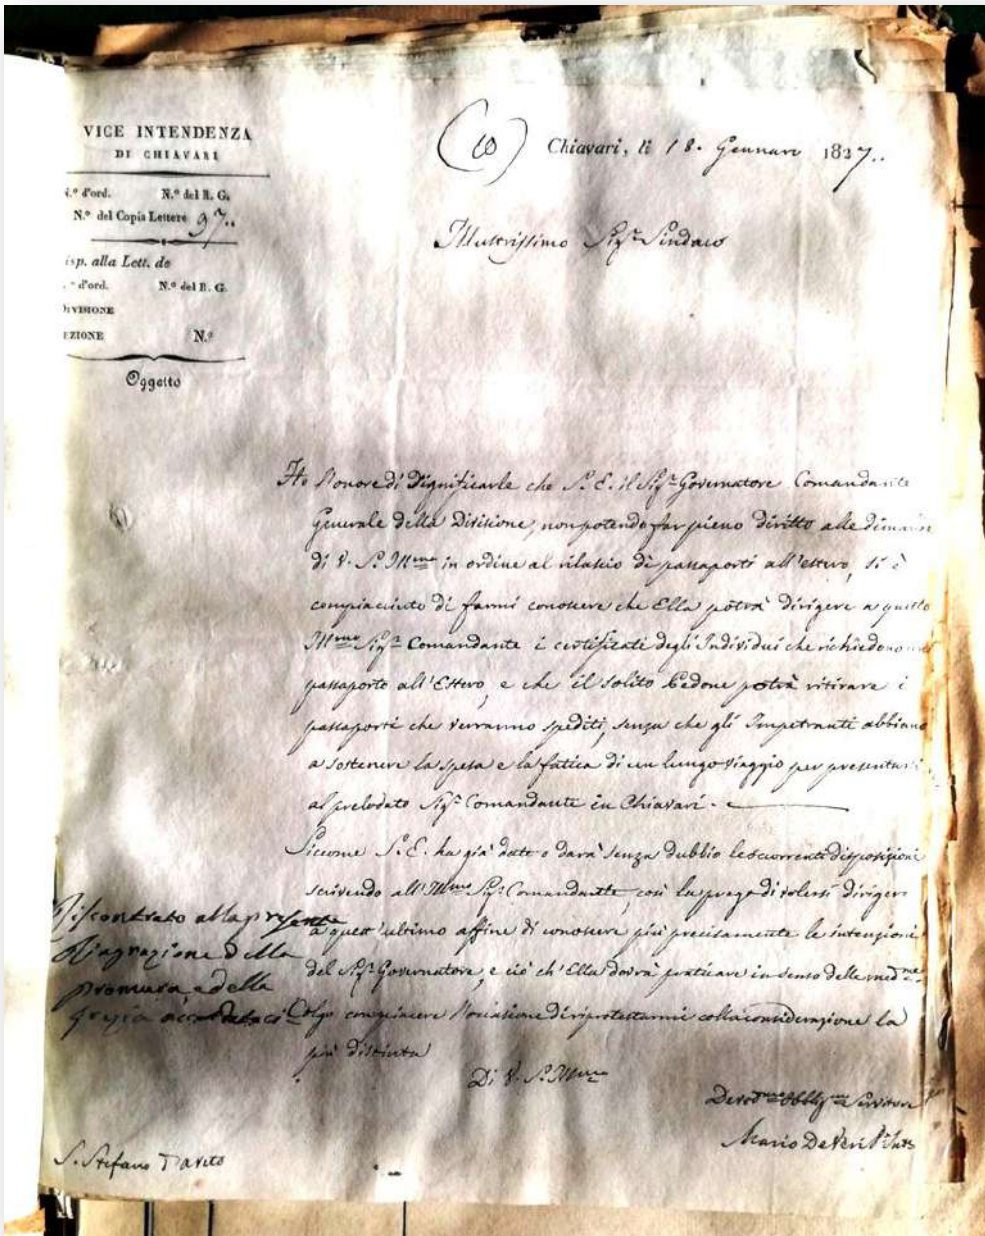 VICE INTENDENZA
DI CHIAVARI
.º d'ord. N.º del R. G.
N.º del Copia Lettere 97..
isp. alla Lett. de
.º d'ord. N.º del R. G.
IVISIONE
EZIONE N.º
Oggetto
(10) Chiavari, li 18. Gennaro 1827..
Illustrissimo Sigr. Sindaco
Ho l'onore di Significarle che S. E. il Sigr. Governatore Comandante
Generale della Divisione, non potendo far pieno diritto alle
di V. S. Ill.ma in ordine al rilascio di passaporti all'estero, si è
compiaciuto di farmi conoscere che Ella potrà dirigere a questo
Ill.mo Sigr. Comandante i certificati degli Individui che richiedono
passaporto all'Estero, e che il solito Pedone potrà ritirare i
passaporti che verranno spediti, senza che gli Impetranti abbiano
a sostenere la spesa e la fatica di un lungo viaggio per presentarsi
al prelodato Sigr. Comandante in Chiavari.
Siccome S. E. ha già date o darà senza dubbio le occorrenti disposizioni
scrivendo all'Ill.mo Sigr. Comandante, così la prego di volersi dirigere
a quest'ultimo affine di conoscere più precisamente le intenzioni
del Sigr. Governatore, e ciò ch'Ella dovrà praticare in senso delle med.me
Colgo con piacere l'occasione di riprotestarmi colla considerazione la
più distinta
Di V. S. Ill.ma
Devot.mo Obblig.mo Servitore
Mario De Veri
Riscontrato alla presente
della
premura, e della
grazia
S. Stefano D'Aveto